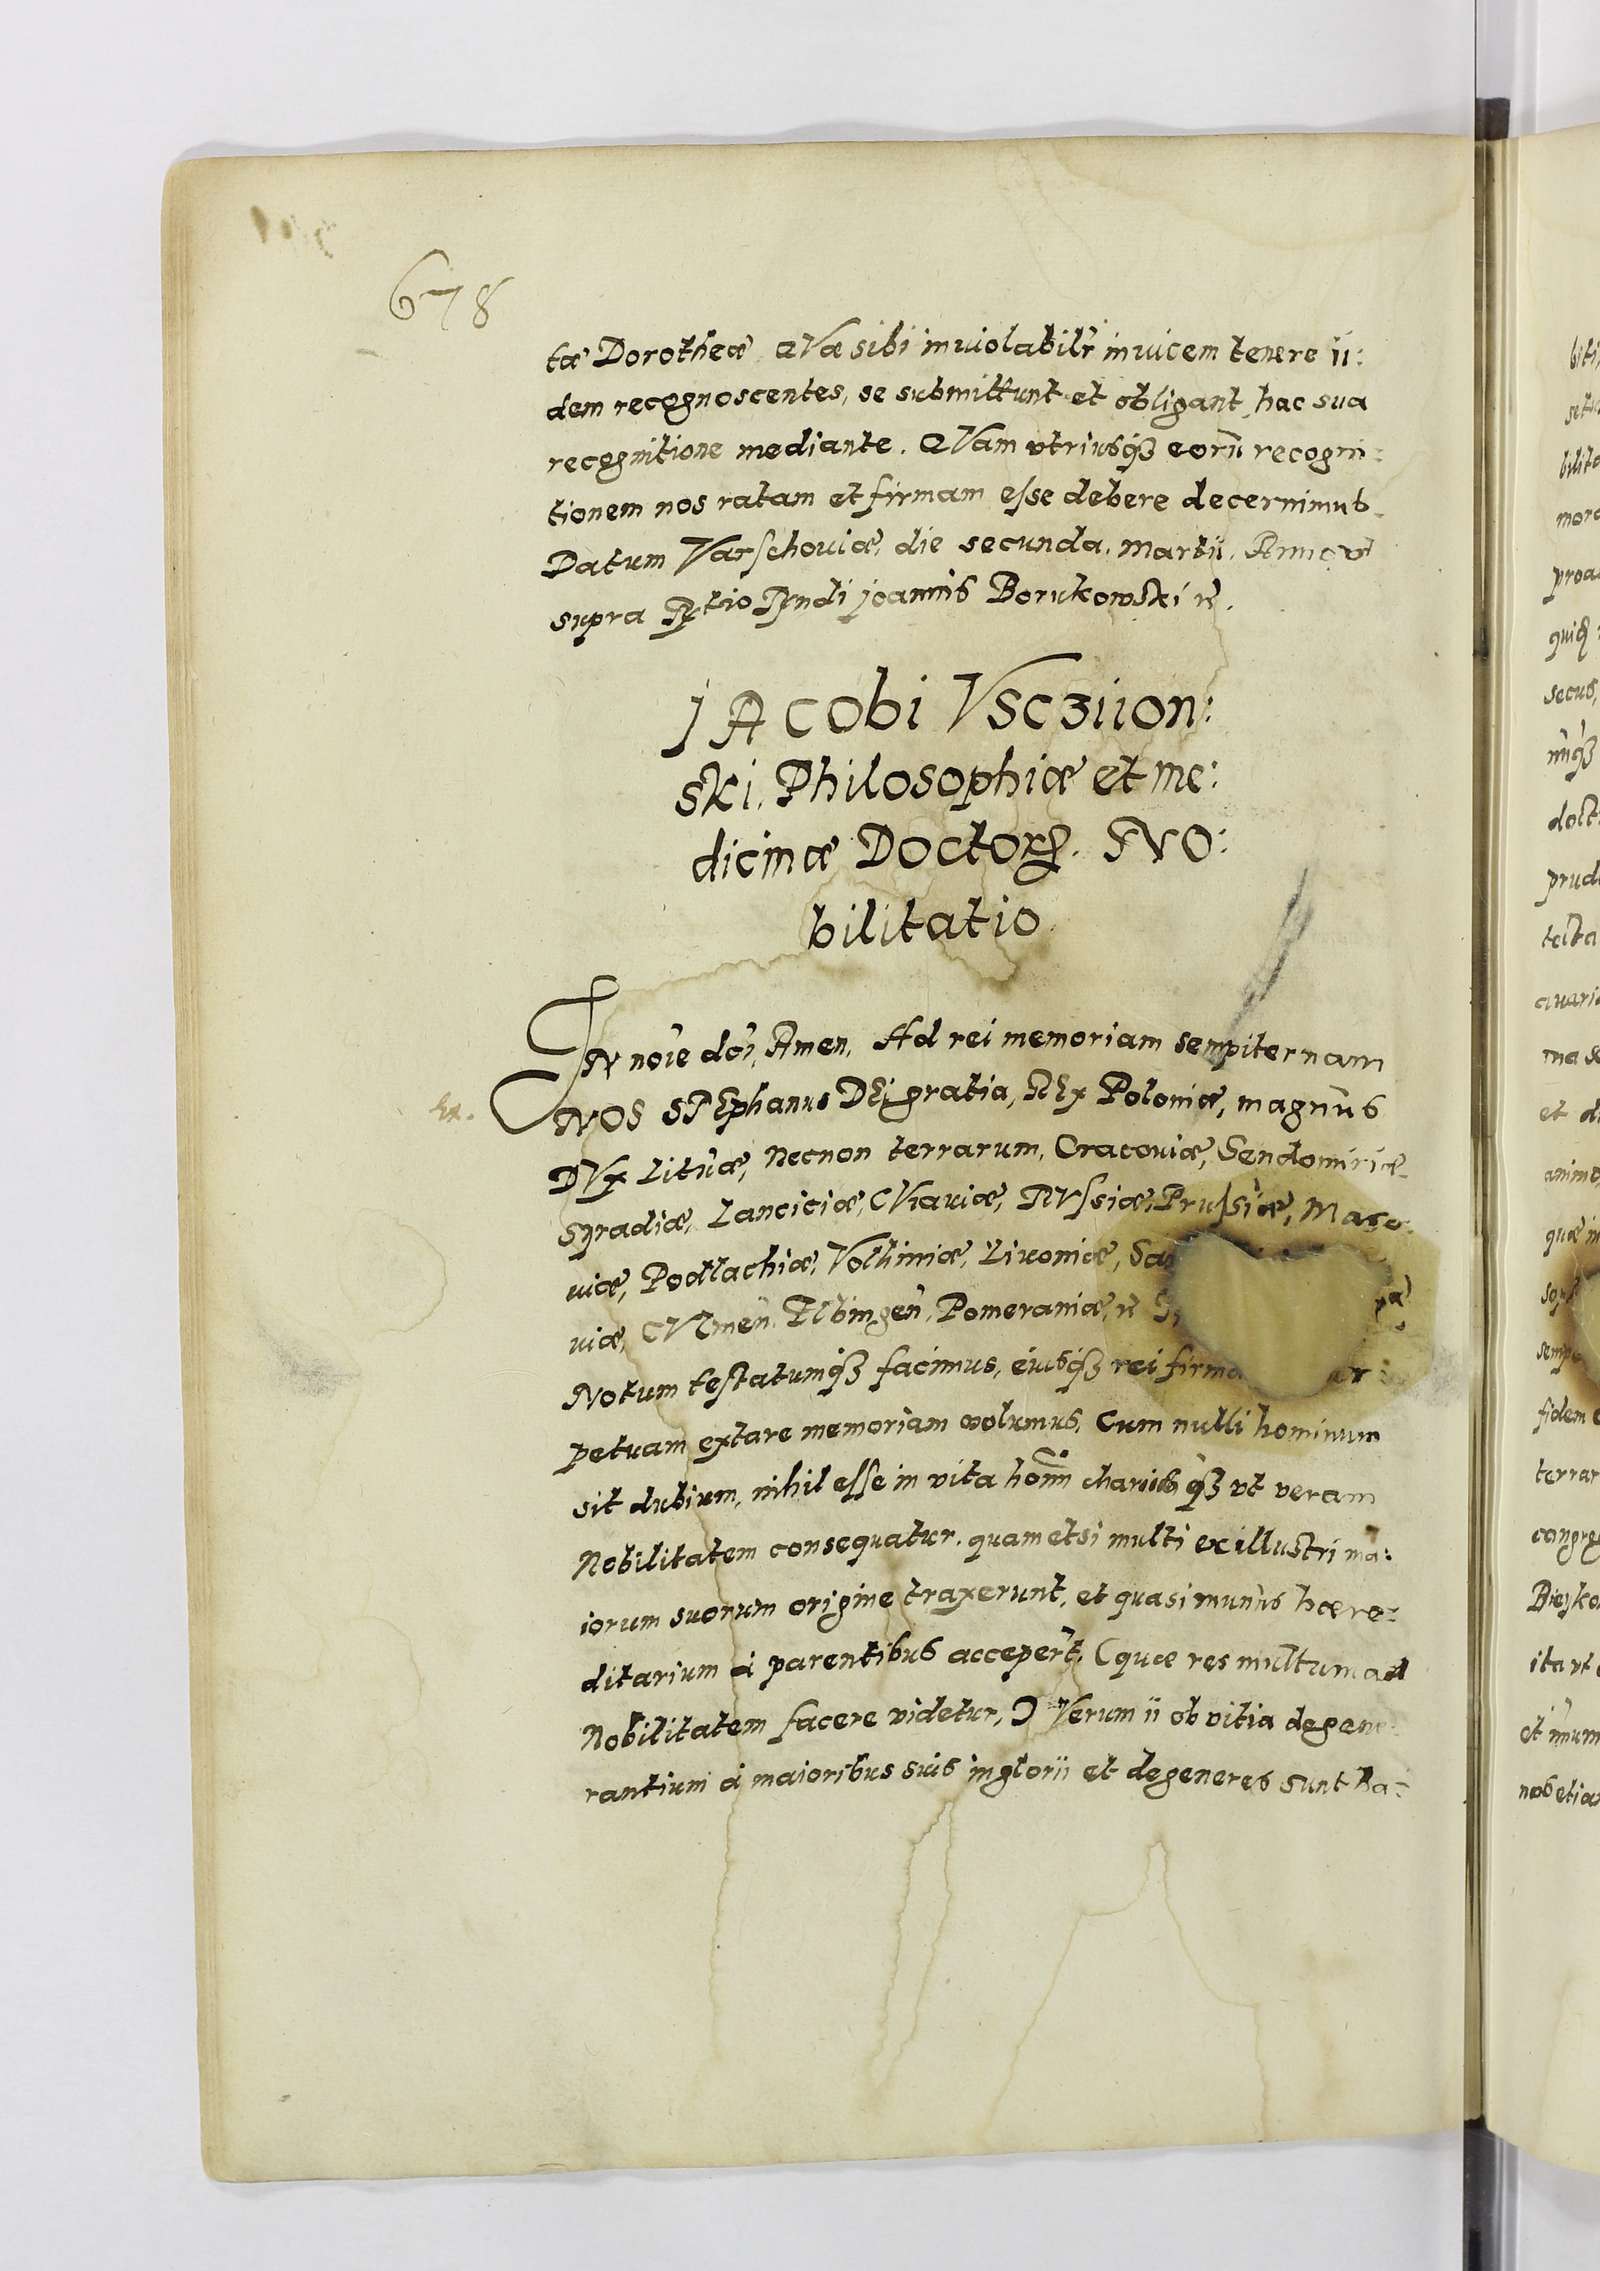 678
tæ Dorotheæ QVæ sibi inuiolabilr̃ inuicem tenere ii:
dem recognoscentes, se submittunt et obligant hac sua
recognitione mediante. QVam vtriusq3 eorũ recogni:
tionem nos ratam et firmam esse debere decernimus.
Datum Varschouiæ, die secunda, Martii, Anno vt
supra Joannis Borukowski
JACobi Vsc3iion:
ski, Philosophiæ et me:
dicinæ Doctor. NO:
bilitatio
IN noie doi, Amen, Ad rei memoriam sempiternam
NOS STEphanus DEi gratia, REx Poloniæ, magnus
DVx Lituæ, Necnon terrarum, Cracouiæ, Sendomiriæ
Syradiæ, Lanciciæ, CViauiæ, RVssiæ, Prussiæ, Maso:
uiæ, Podlachiæ, Volliniæ, Liuoniæ, Sa
uiæ, CVlmeñ Elbingeñ, Pomeraniæ,
Notum testatumq3 facimus, eiusq3 rei firma
petuam extare memoriam volumus, Cum nulli hominum
sit dubium, nihil esse in vita hom̃ charius q3 vt veram
Nobilitatem consequatur. quam etsi multi ex illustri ma:
iorum suorum origine traxerunt, et quasi munus hære:
ditarium à parentibus acceper̃t, (quæ res multum ad
Nobilitatem facere videtur,) Verum ii ob vitia degene
rantium à maioribus suis inglorii et degeneres sunt ha: